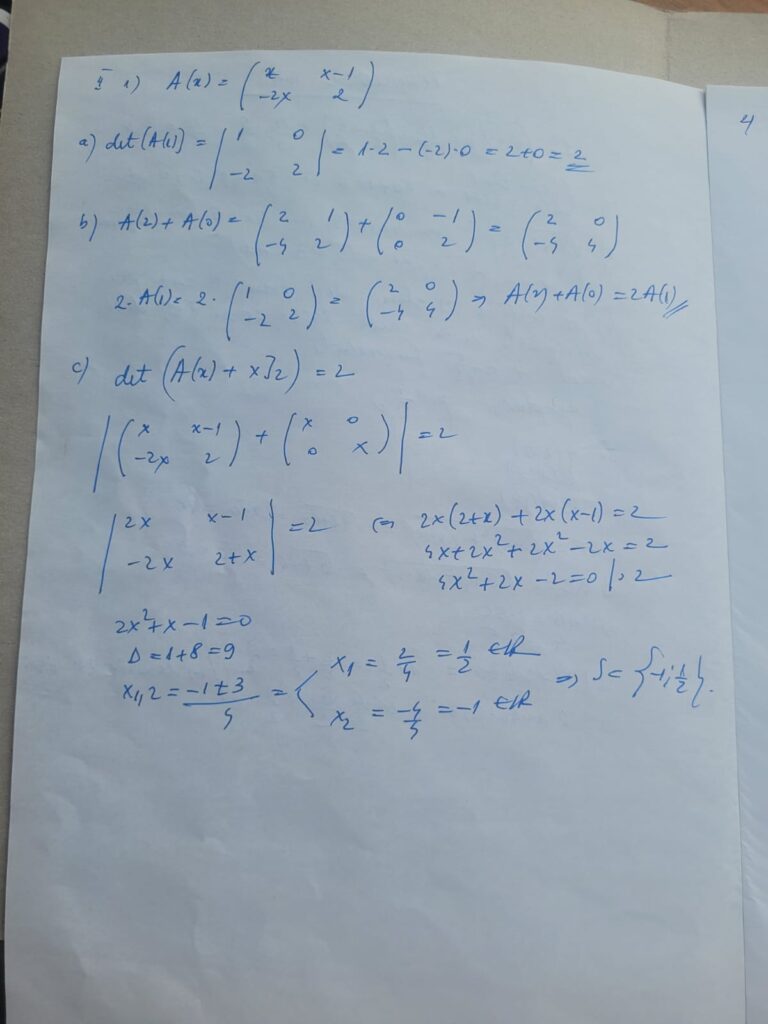 II 1) A(x) = (x x-1 / -2x 2)
4
a) det(A(1)) = |1 0 / -2 2| = 1·2 - (-2)·0 = 2+0 = 2
b) A(2) + A(0) = (2 1 / -4 2) + (0 -1 / 0 2) = (2 0 / -4 4)
2·A(1) = 2·(1 0 / -2 2) = (2 0 / -4 4) ⇒ A(2)+A(0) = 2A(1)
c) det(A(x) + xI2) = 2
|(x x-1 / -2x 2) + (x 0 / 0 x)| = 2
|2x x-1 / -2x 2+x| = 2 ⇔ 2x(2+x) + 2x(x-1) = 2
4x+2x²+2x²-2x = 2
4x²+2x-2 = 0 |:2
2x²+x-1=0
Δ = 1+8 = 9
x1,2 = (-1±3)/4 = < x1 = 2/4 = 1/2 ∈ℝ
x2 = -4/4 = -1 ∈ℝ
⇒ S = {-1; 1/2}.